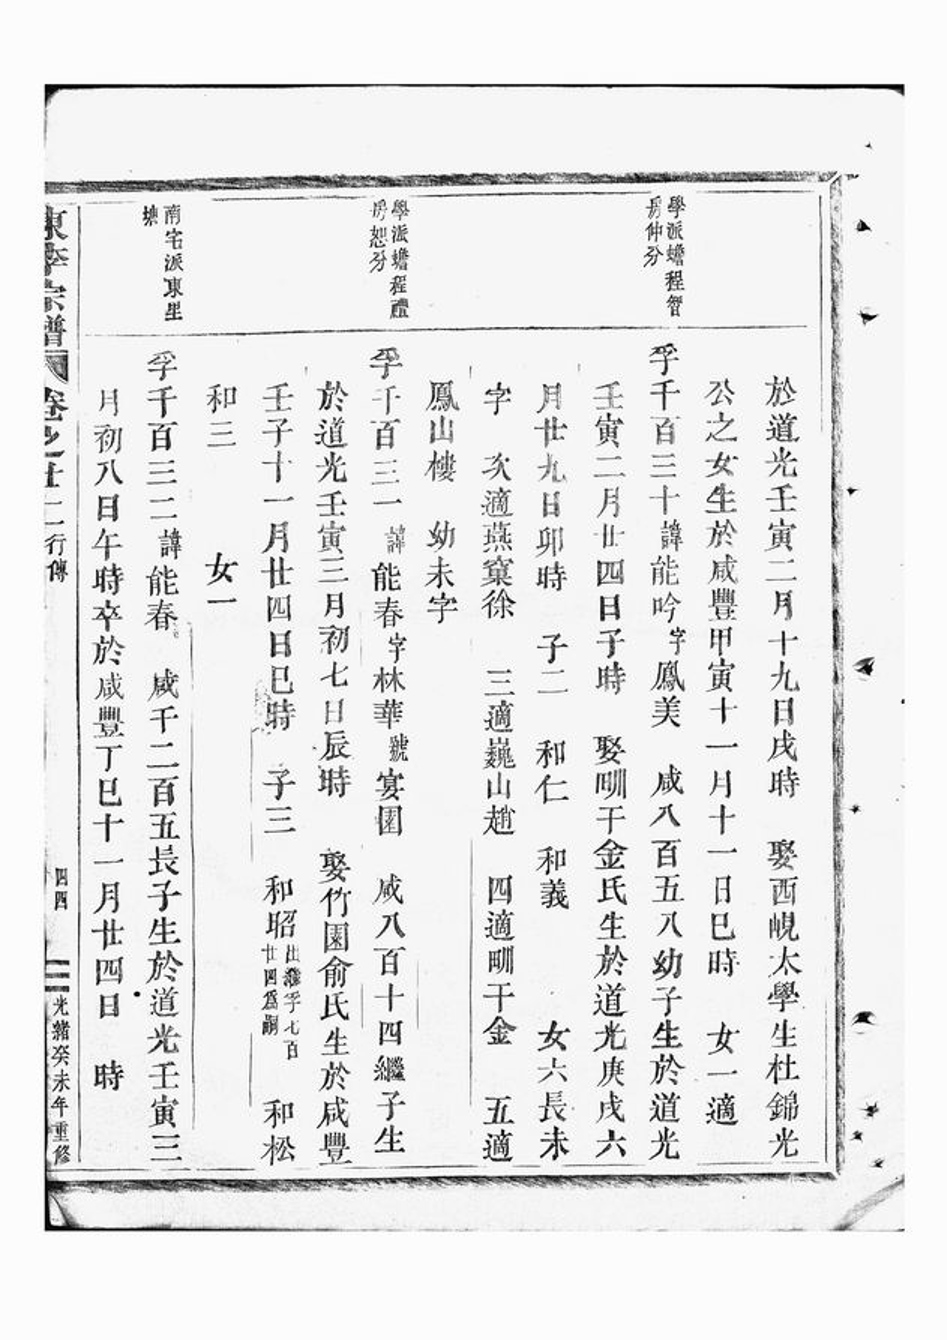 學派蟾程智
房仲分
學派蟾程禮
房恕分
南宅派東里
塘
於道光壬寅二月十九日戌時 娶西峴太學生杜錦光
公之女生於咸豐甲寅十一月十一日巳時 女一適
孚千百三十諱能吟字鳳美 咸八百五八幼子生於道光
壬寅二月廿四日子時 娶𤱶干金氏生於道光庚戌六
月廿九日卯時 子二 和仁 和義 女六長未
字 次適燕窠徐 三適巍山趙 四適𤱶干金 五適
鳳山樓 幼未字
孚千百三一諱能春字林華號宴園 咸八百十四繼子生
於道光壬寅三月初七日辰時 娶竹園俞氏生於咸豐
壬子十一月廿四日巳時 子三 和昭出繼孚七百廿四為嗣 和松
和三 女一
孚千百三二諱能春 咸千二百五長子生於道光壬寅三
月初八日午時卒於咸豐丁巳十一月廿四日 時
東李宗譜 卷之廿二行傳 四四 光緒癸未年重修